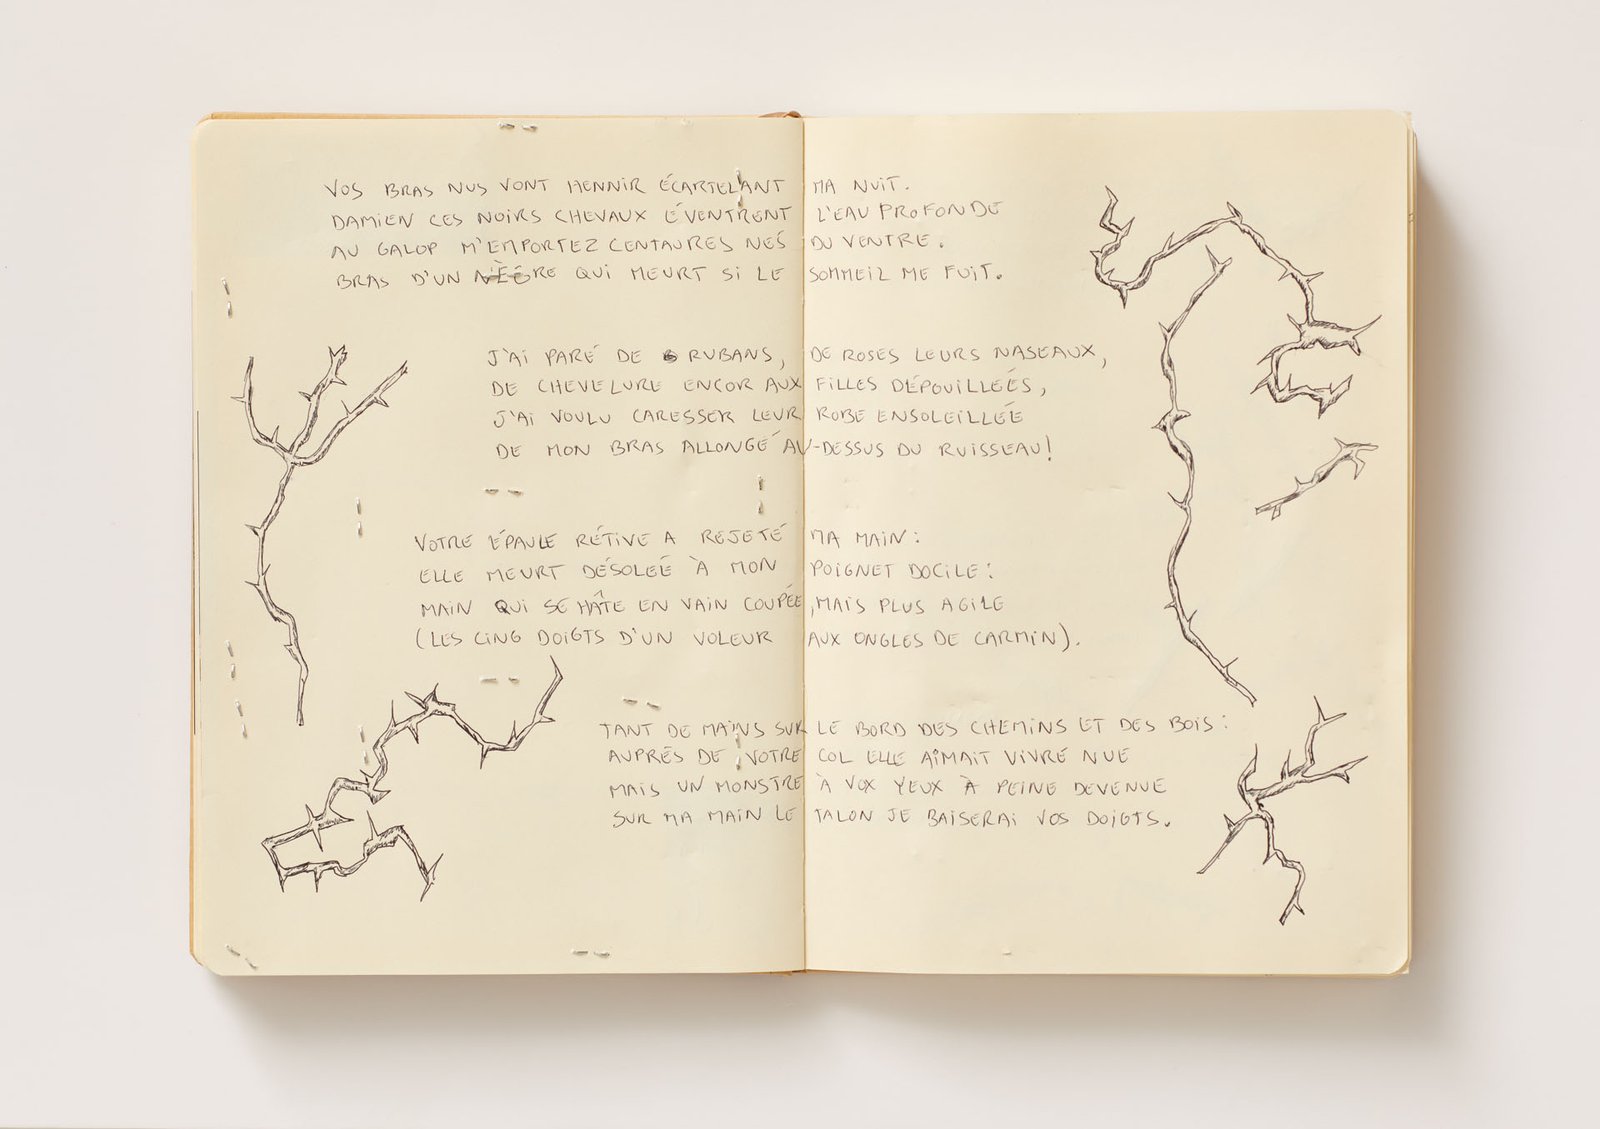 VOS BRAS NUS VONT HENNIR ÉCARTELANT MA NUIT.
DAMIEN CES NOIRS CHEVAUX ÉVENTRENT L'EAU PROFONDE
AU GALOP M'EMPORTEZ CENTAURES NÉS DU VENTRE.
BRAS D'UN NÈGRE QUI MEURT SI LE SOMMEIL ME FUIT.
J'AI PARÉ DE RUBANS, DE ROSES LEURS NASEAUX,
DE CHEVELURE ENCOR AUX FILLES DÉPOUILLÉES,
J'AI VOULU CARESSER LEUR ROBE ENSOLEILLÉE
DE MON BRAS ALLONGÉ AU-DESSUS DU RUISSEAU!
VOTRE ÉPAULE RÉTIVE A REJETÉ MA MAIN:
ELLE MEURT DÉSOLÉE À MON POIGNET DOCILE:
MAIN QUI SE HÂTE EN VAIN COUPÉE, MAIS PLUS AGILE
(LES CINQ DOIGTS D'UN VOLEUR AUX ONGLES DE CARMIN).
TANT DE MAINS SUR LE BORD DES CHEMINS ET DES BOIS:
AUPRÈS DE VOTRE COL ELLE AIMAIT VIVRE NUE
MAIS UN MONSTRE À VOX YEUX À PEINE DEVENUE
SUR MA MAIN LE TALON JE BAISERAI VOS DOIGTS.